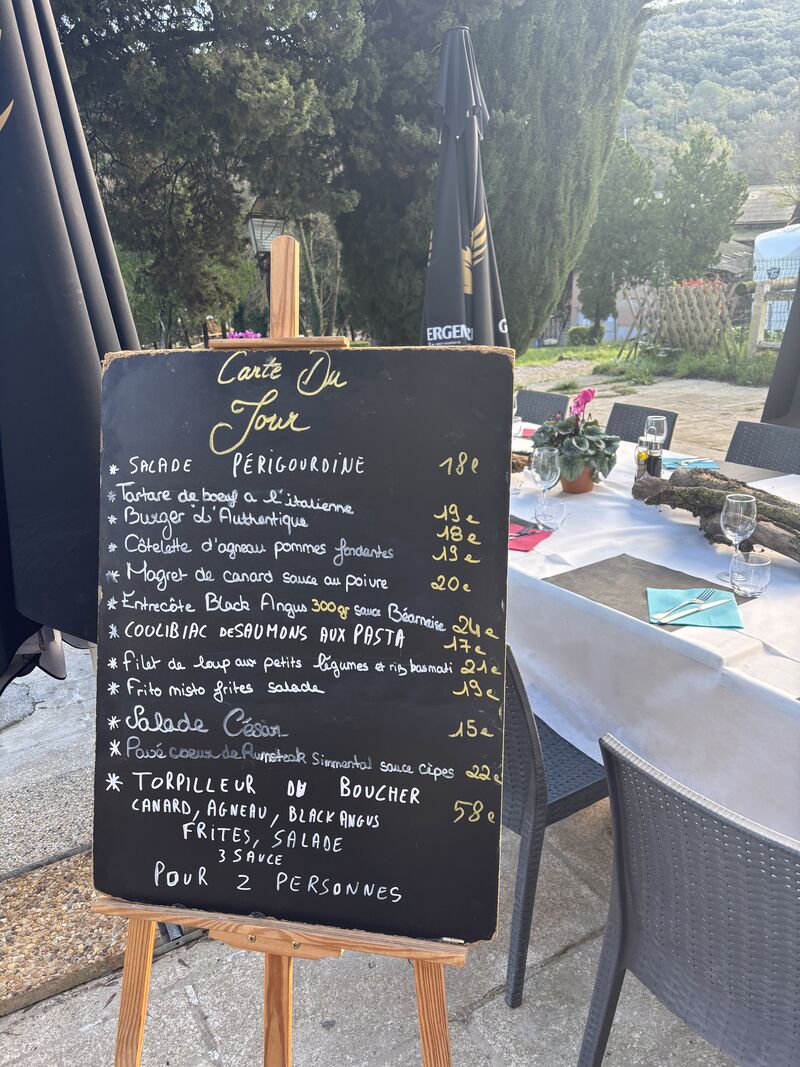 ERGEN
G
Carte Du
Jour
* SALADE PÉRIGOURDINE 18e
* Tartare de boeuf a l'italienne 19e
* Burger "L'Authentique 18e
* Côtelette d'agneau pommes fondantes 19e
* Magret de canard sauce au poivre 20e
* Entrecôte Black Angus 300gr sauce Béarnaise 24e
* COULIBIAC DE SAUMONS AUX PASTA 17e
* Filet de loup aux petits légumes et riz basmati 21e
* Frito misto frites salade 19e
* Salade César 15e
* Pavé coeur de Rumsteak Simmental sauce cèpes 22e
* TORPILLEUR DU BOUCHER 58e
CANARD, AGNEAU, BLACK ANGUS
FRITES, SALADE
3 SAUCE
POUR 2 PERSONNES